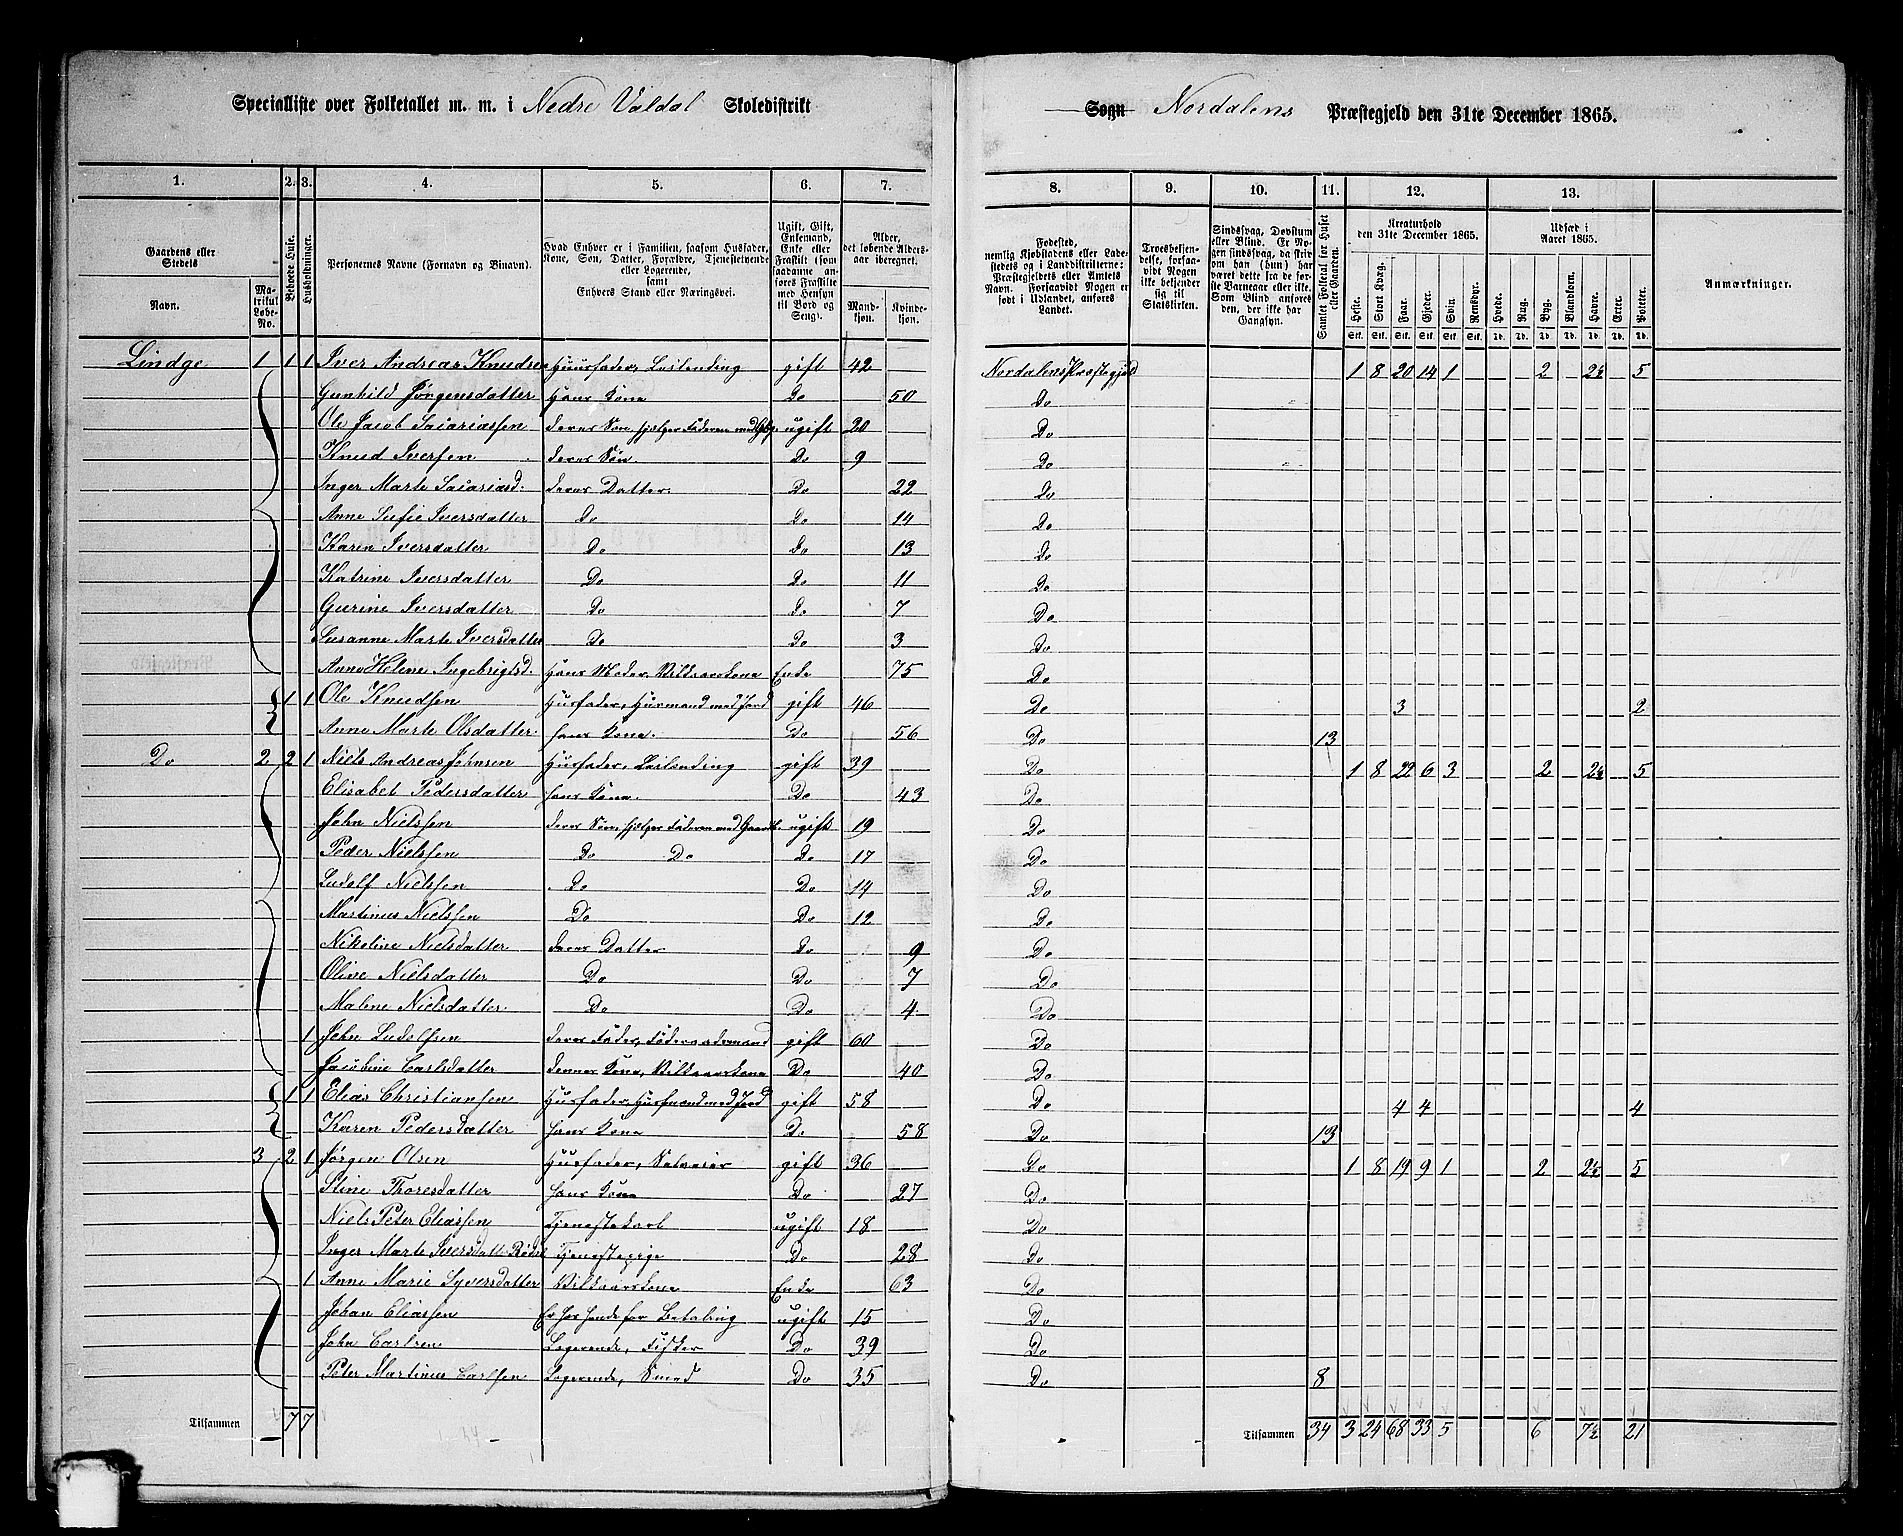 Specialliste over Folketallet m. m. i Nedre Valdal Skoledistrikt
Sogn Nordalens Præstegjeld den 31te December 1865.
1. 2. 3. 4. 5. 6. 7. 8. 9. 10. 11. 12. 13.
Gaardens eller Stedets
Navn.
Matrikul Løbe-No.
Beboede Huse.
Husholdninger.
Personernes Navne (Fornavn og Binavn).
Hvad Enhver er i Familien, saasom Husfader, Kone, Søn, Datter, Forældre, Tjenestetyende eller Logerende, samt Enhvers Stand eller Næringsvei.
Ugift, Gift, Enkemand, Enke eller Fraskilt (som saadanne anføres Fraskilte med Hensyn til Bord og Seng).
Alder, det løbende Alders-aar iberegnet.
Mandkjøn. Kvindekjøn.
Fødested, nemlig Kjøbstadens eller Ladestedets og i Landdistrikterne: Præstegjeldets eller Amtets Navn. Forsaavidt Nogen er født i Udlandet, anføres Landet.
Troesbekjendelse, forsaavidt Nogen ikke bekjender sig til Statskirken.
Sindssvag, Døvstum eller Blind. Er Nogen sindssvag, da skrives om han (hun) har været dette fra de første Barneaar eller ikke. Som Blind anføres den, der ikke har Gangsyn.
Samlet Folketal for Huset eller Gaarden.
Kreaturhold den 31te December 1865.
Heste. Stort Kvæg. Faar. Gjeder. Svin. Rensdyr.
Udsæd i Aaret 1865.
Hvede. Rug. Byg. Blandkorn. Havre. Erter. Poteter.
Anmærkninger.
Stk. Stk. Stk. Stk. Stk. Stk. Td. Td. Td. Td. Td. Td. Td.
Lindge 1 1 1 Iver Andreas Knudsen Huusfader, Leilending gift 42 Nordalens Præstegjeld 1 8 20 14 1 2 2½ 5
Gunhild Jørgensdatter Hans Kone Do 50 Do
Ole Jacob Sacariassen deres Søn, hjelper Faderen med ugift 20 Do
Knud Iversen deres Søn Do 9 Do
Inger Marte Sacariasd. deres Datter. Do 22 Do
Anne Sufie Iversdatter Do Do 14 Do
Karen Iversdatter Do Do 13 Do
Katrine Iversdatter Do Do 11 Do
Gurine Iversdatter Do Do 7 Do
Susanne Marte Iversdatter Do Do 3 Do
Anne Helene Ingebrigtsd. Hans Moder, Vilkaarskone Enke 75 Do
1 1 Ole Knudsen Husfader, Husmand med Jord gift 46 Do 3 2
Anne Marte Olsdatter hans Kone. Do 56 Do 13
Do 2 2 1 Niels Andreas Johnsen Husfader, Leilending gift 39 Do 1 8 22 6 3 2 2½ 5
Elisabet Pedersdatter hans Kone. Do 43 Do
John Nielssen deres Søn, hjelper Faderen med Gaardb. ugift 19 Do
Peder Nielssen Do Do Do 17 Do
Ludolf Nielssen Do Do 14 Do
Martinus Nielssen Do Do 12 Do
Nikoline Nielsdatter deres Datter Do 9 Do
Olive Nielsdatter Do Do 7 Do
Malene Nielsdatter Do Do 4 Do
1 John Ludolfsen deres Fader, Føderaadsmand gift 60 Do
Jacobine Carlsdatter dennes Kone, Vilkaarskone Do 40 Do
1 1 Elias Christiansen Husfader, Husmand med Jord gift 58 Do 4 4 4
Karen Pedersdatter hans Kone Do 58 Do 13
3 2 1 Jørgen Olsen Husfader, Selveier gift 36 Do 1 8 19 9 1 2 2½ 5
Stine Thoresdatter hans Kone Do 27 Do
Niels Peter Eliassen Tjenestekarl ugift 18 Do
Inger Marte Iversdatter Tjenestepige Do 28 Do
1 Anne Marie Syversdatter Vilkaarskone Enke 63 Do
Johan Eliassen Er hos hende for Betaling ugift 15 Do
John Carlsen Logerende, Fisker Do 39 Do
Peter Martinus Carlsen Logerende, Smed Do 35 Do 8
Tilsammen 7 7
Tilsammen 34 3 24 68 33 5 6 7½ 21